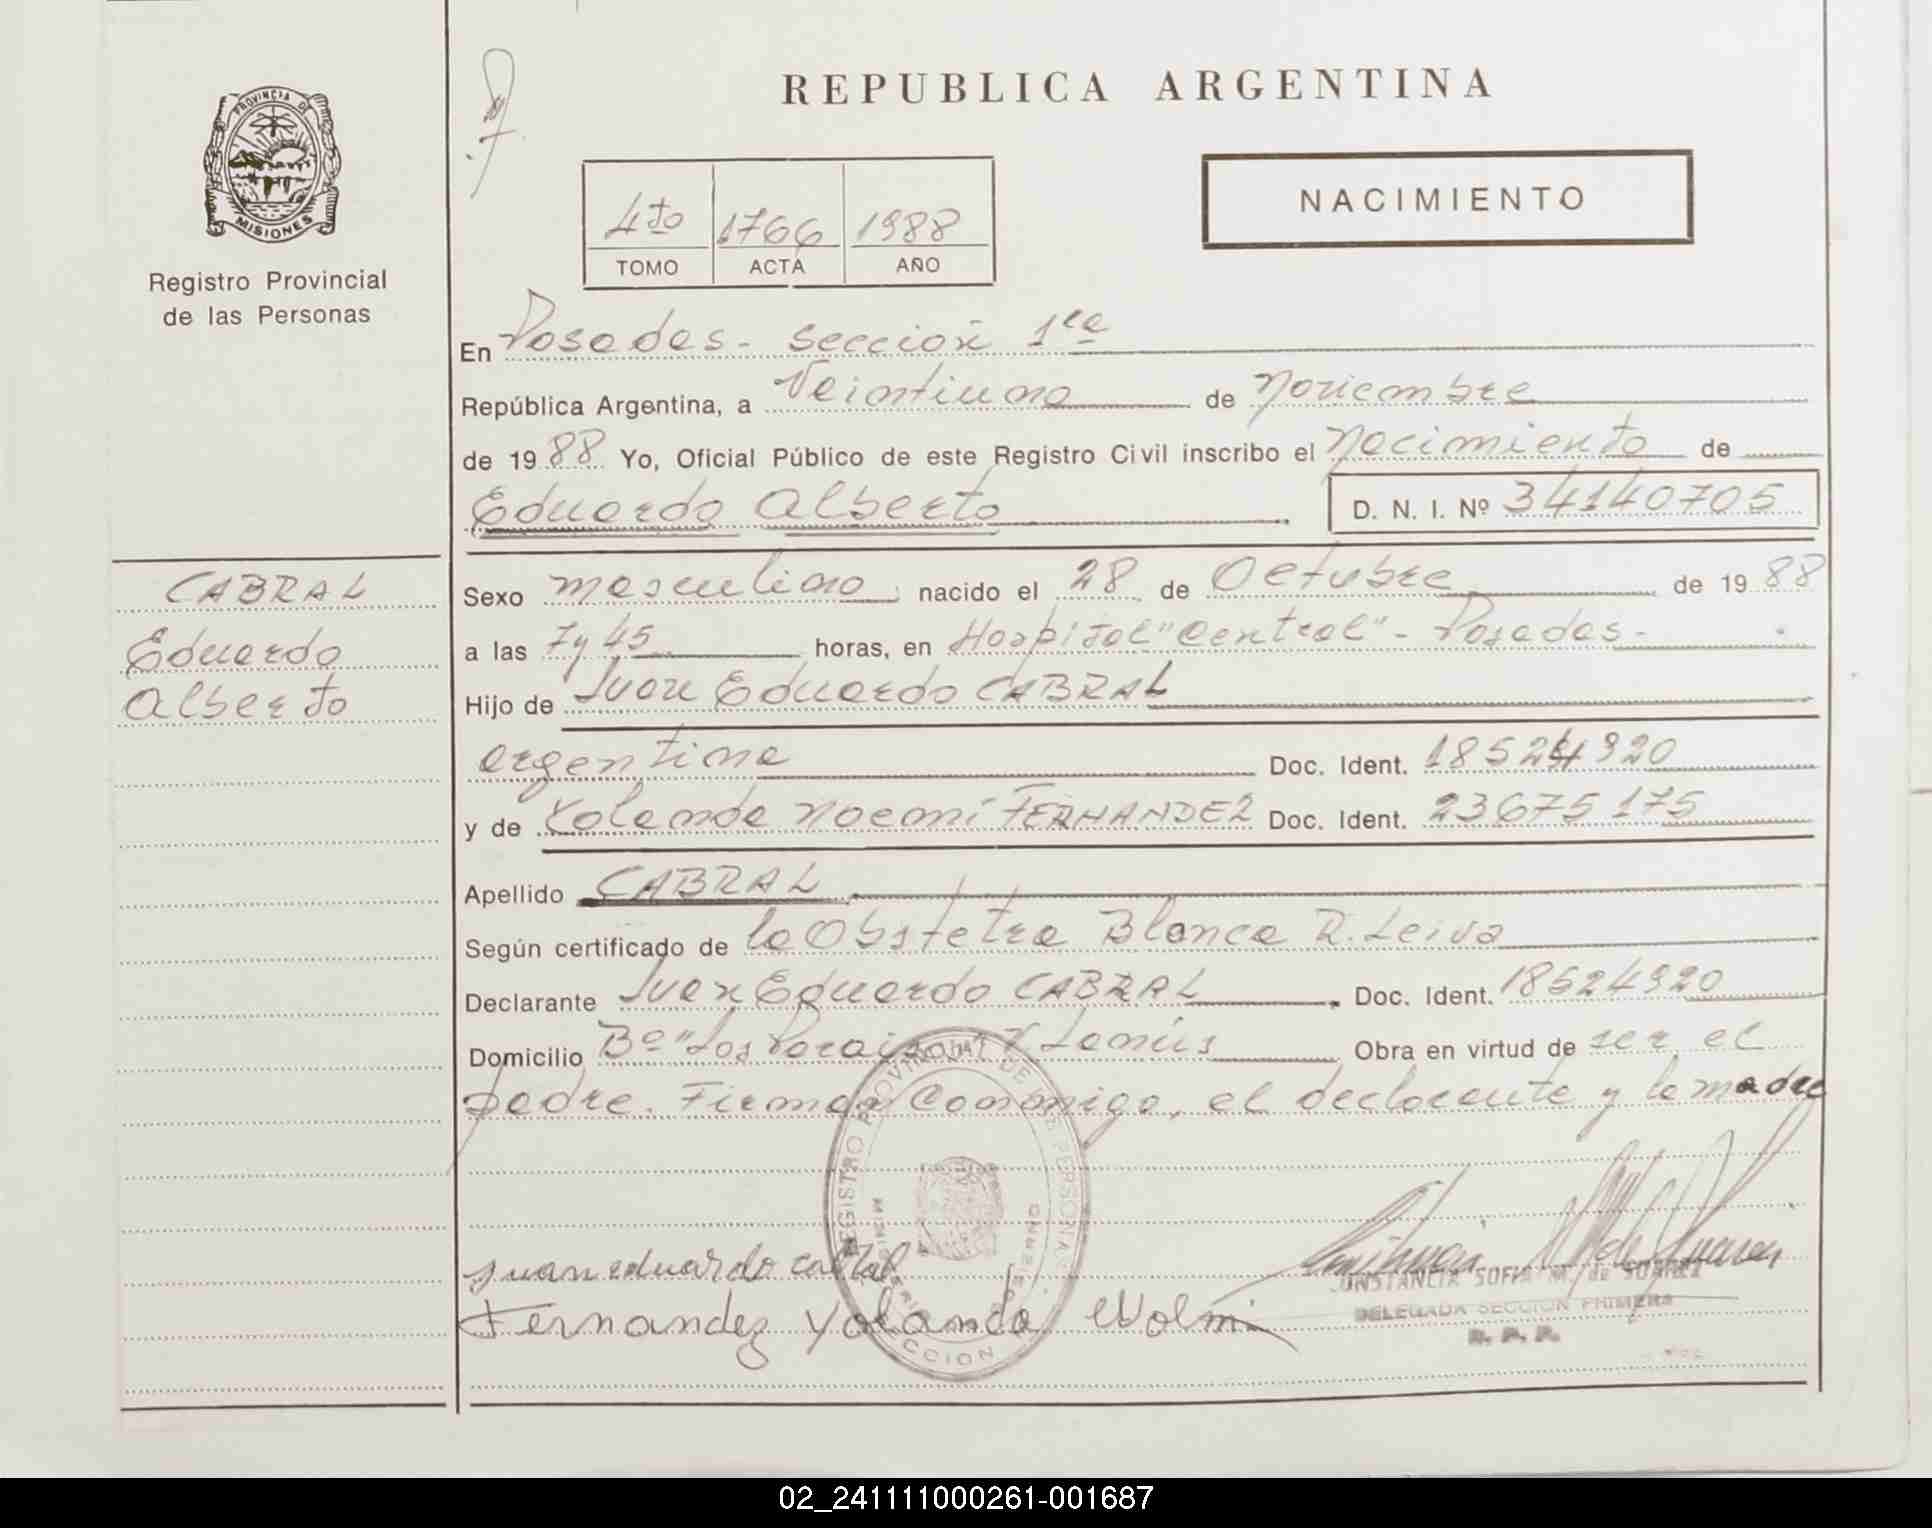 PROVINCIA DE
MISIONES
Registro Provincial
de las Personas
REPUBLICA ARGENTINA
NACIMIENTO
4to 1766 1988
TOMO ACTA AÑO
En Posadas - Sección 1ra
República Argentina, a Veintiuno de Noviembre
de 1988 Yo, Oficial Público de este Registro Civil inscribo el Nacimiento de
Eduardo Alberto D. N. I. Nº 34140705
CABRAL
Eduardo
Alberto
Sexo masculino nacido el 28 de Octubre de 1988
a las 7 y 45 horas, en Hospital "Central" - Posadas -
Hijo de Juan Eduardo CABRAL
argentino Doc. Ident. 18524920
y de Yolanda Noemí FERNANDEZ Doc. Ident. 23675175
Apellido CABRAL
Según certificado de la Obstetra Blanca R. Leiva
Declarante Juan Eduardo CABRAL Doc. Ident. 18524920
Domicilio Bº "Los Paraisos" Y Lanús Obra en virtud de ser el
padre. Firman Conmigo, el declarante y la madre
REGISTRO PROVINCIAL DE LAS PERSONAS
juan eduardo cabral
Fernandez Yolanda Nolmi
CONSTANCIA SOFIA M. de SUAREZ
DELEGADA SECCION PRIMERA
R. P. P.
02_241111000261-001687